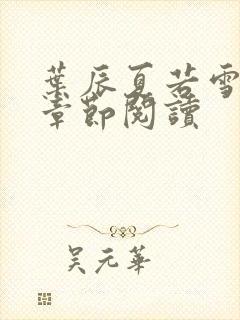 葉辰夏若雪
章節閱讀
吴元華